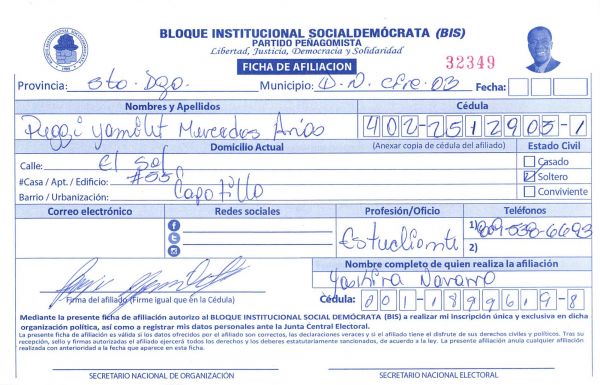 BLOQUE INSTITUCIONAL SOCIALDEMÓCRATA (BIS)
PARTIDO PEÑAGOMISTA
Libertad, Justicia, Democracia y Solidaridad
FICHA DE AFILIACION
32349
Provincia: Sto. Dgo. Municipio: D.N. Circ. 03 Fecha:
Nombres y Apellidos Cédula
Yamilet Mercedes Arias 402-2512903-1
Domicilio Actual (Anexar copia de cédula del afiliado) Estado Civil
Calle: El Sol Casado
#Casa / Apt. / Edificio: #55 Soltero
Barrio / Urbanización: Capotillo Conviviente
Correo electrónico Redes sociales Profesión/Oficio Teléfonos
Estudiante 1) 809-538-6693
2)
Nombre completo de quien realiza la afiliación
Yashira Navarro
Firma del afiliado (Firme igual que en la Cédula) Cédula: 001-1899619-8
Mediante la presente ficha de afiliación autorizo al BLOQUE INSTITUCIONAL SOCIAL DEMÓCRATA (BIS) a realizar mi inscripción única y exclusiva en dicha
organización política, así como a registrar mis datos personales ante la Junta Central Electoral.
La presente ficha de afiliación es válida si los datos ofrecidos por el afiliado son correctos, las declaraciones veraces y si el afiliado tiene el disfrute de sus derechos civiles y políticos. Tras su
recepción, sello y firmas autorizadas el afiliado ejercerá todos los derechos y los deberes estatutariamente sancionados, de acuerdo a la ley. La presente afiliación anula cualquier afiliación
realizada con anterioridad a la fecha que aparece en esta ficha.
SECRETARIO NACIONAL DE ORGANIZACIÓN SECRETARIO NACIONAL ELECTORAL